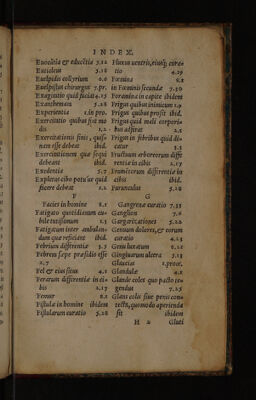 INDEX.
Euocatia & educatia 5.12
Eutcleum 5.18
Euelpidis collyrium 6.6
Euelpistus chirurgus 7.pr.
Exagitatio quid faciat 4.15
Exanthemata 5.28
Experientia 1.in pro.
Exercitatio quibus fiat modis 1.2.
Exercitationis finis, quisnam esse debeat ibid.
Exercitationem quæ sequi debeant ibid.
Exedentia 5.7
Expletus cibo potu'ue quid facere debeat 1.2
F
Facies in homine 8.1
Fatigato quotidianum cubile tutissimum 1.3
Fatigatum inter ambulandum quæ reficiant ibid.
Febrium differentiæ 3.3
Febres sæpe præsidio esse 2.7
Fel & eius situs 4.1
Ferarum differentiæ in cibis 2.17
Femur 8.1
Fistulæ in homine ibidem
Fistularum curatio 5.28
Fluxus uentris, eiusq; curatio 4.19
Fœmina 8.1
in Fœminis secunda 7.30
Foramina in capite ibidem
Frigus quibus inimicum 1.9
Frigus quibus prosit ibid.
Frigus quid mali corporibus adferat 2.1
Frigus in febribus quid dicatur 3.3
Fructuum arboreorum differentia in cibis 2.17
Frumentorum differentia in cibis ibid.
Furunculus 5.28
G
Gangrenæ curatio 7.33
Ganglien 7.6
Gargarizationes 5.22
Genuum dolores, & eorum curatio 4.23
Geniu luxatum 8.21
Gingiuarum ulcera 5.13
Glaucias 1.prooe.
Glandulæ 4.1
Glande coles quo pacto tegendus 7.25
Glans colis siue penis contecta, quo modo aperienda sit ibidem
H 2 Gluti